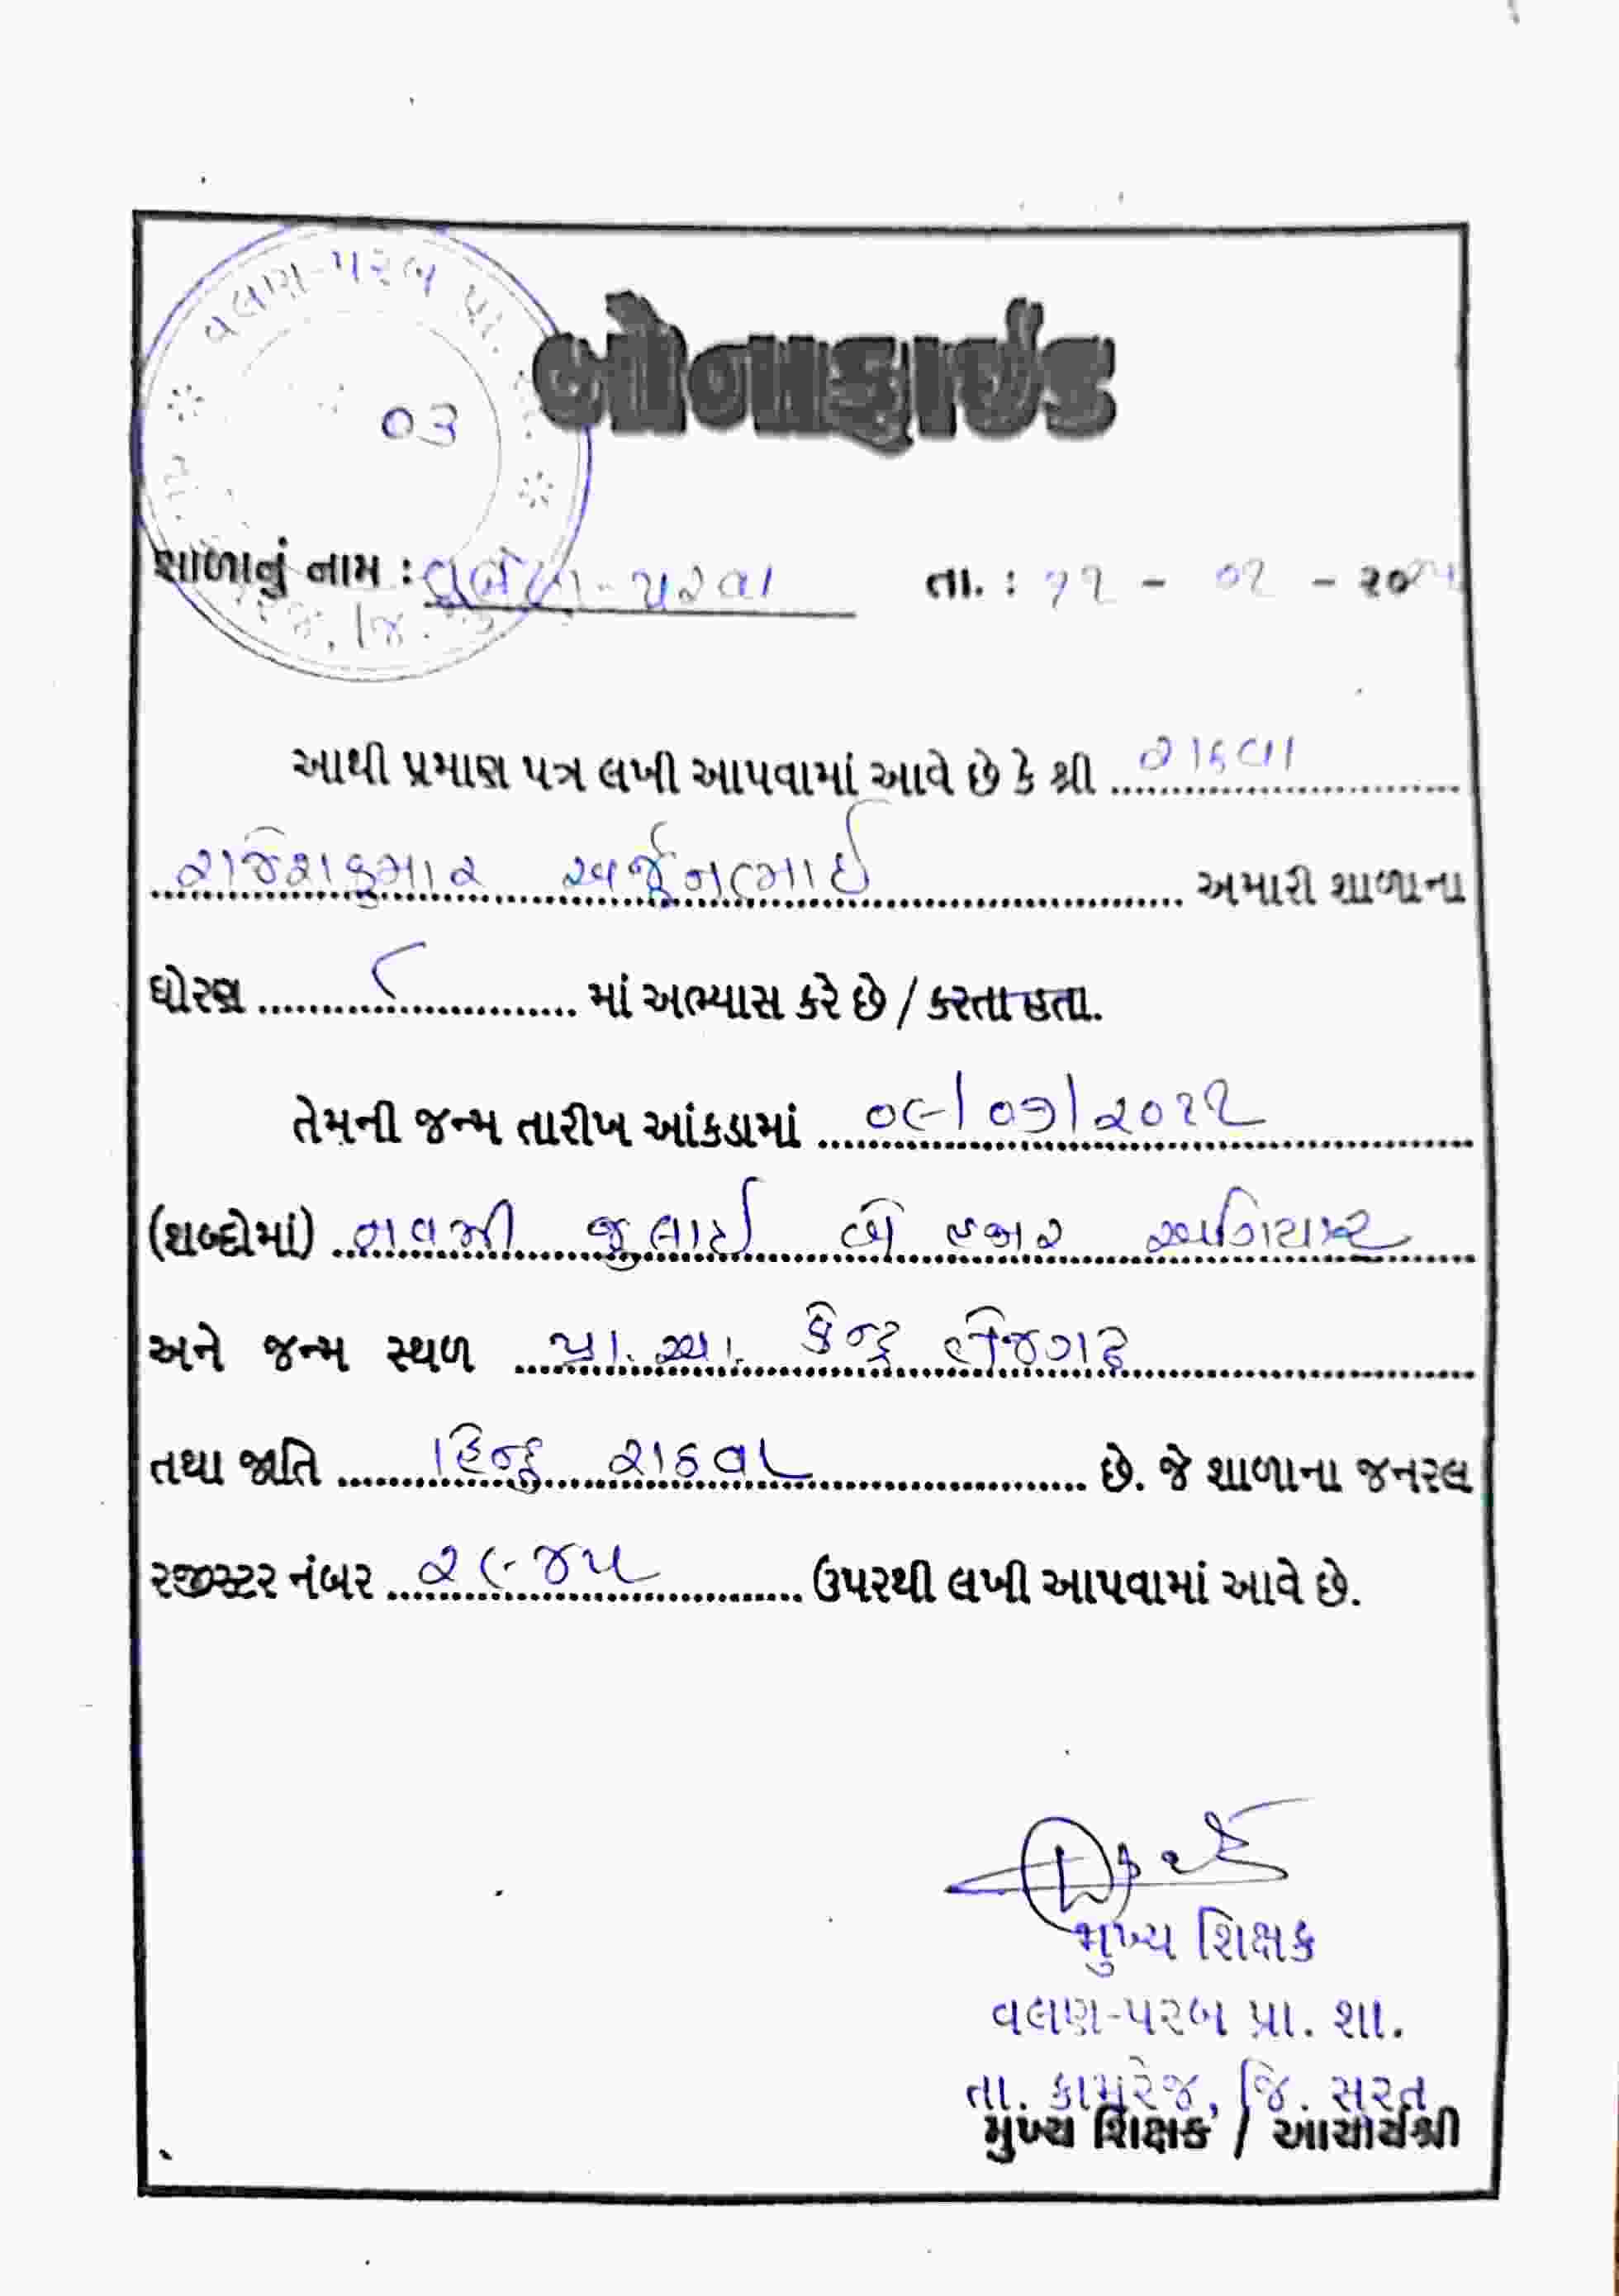 વલણ-પરબ પ્રા.
બોનાફાઈડ
03
શાળાનું નામ : વલણ-પરબ તા. : ૧૨ - ૦૨ - ૨૦૨૫
આથી પ્રમાણ પત્ર લખી આપવામાં આવે છે કે શ્રી રાઠવા
રાજેશકુમાર અર્જુનભાઈ અમારી શાળાના
ધોરણ ૮ માં અભ્યાસ કરે છે / કરતા હતા.
તેમની જન્મ તારીખ આંકડામાં ૦૯/૦૭/૨૦૧૧
(શબ્દોમાં) નવમી જુલાઈ બે હજાર અગિયાર
અને જન્મ સ્થળ પ્રા. આ. કેન્દ્ર તેજગઢ
તથા જાતિ હિન્દુ રાઠવા છે. જે શાળાના જનરલ
રજીસ્ટર નંબર ૨૯૪૫ ઉપરથી લખી આપવામાં આવે છે.
મુખ્ય શિક્ષક
વલણ-પરબ પ્રા. શા.
તા. કામરેજ, જિ. સુરત
મુખ્ય શિક્ષક / આચાર્યશ્રી